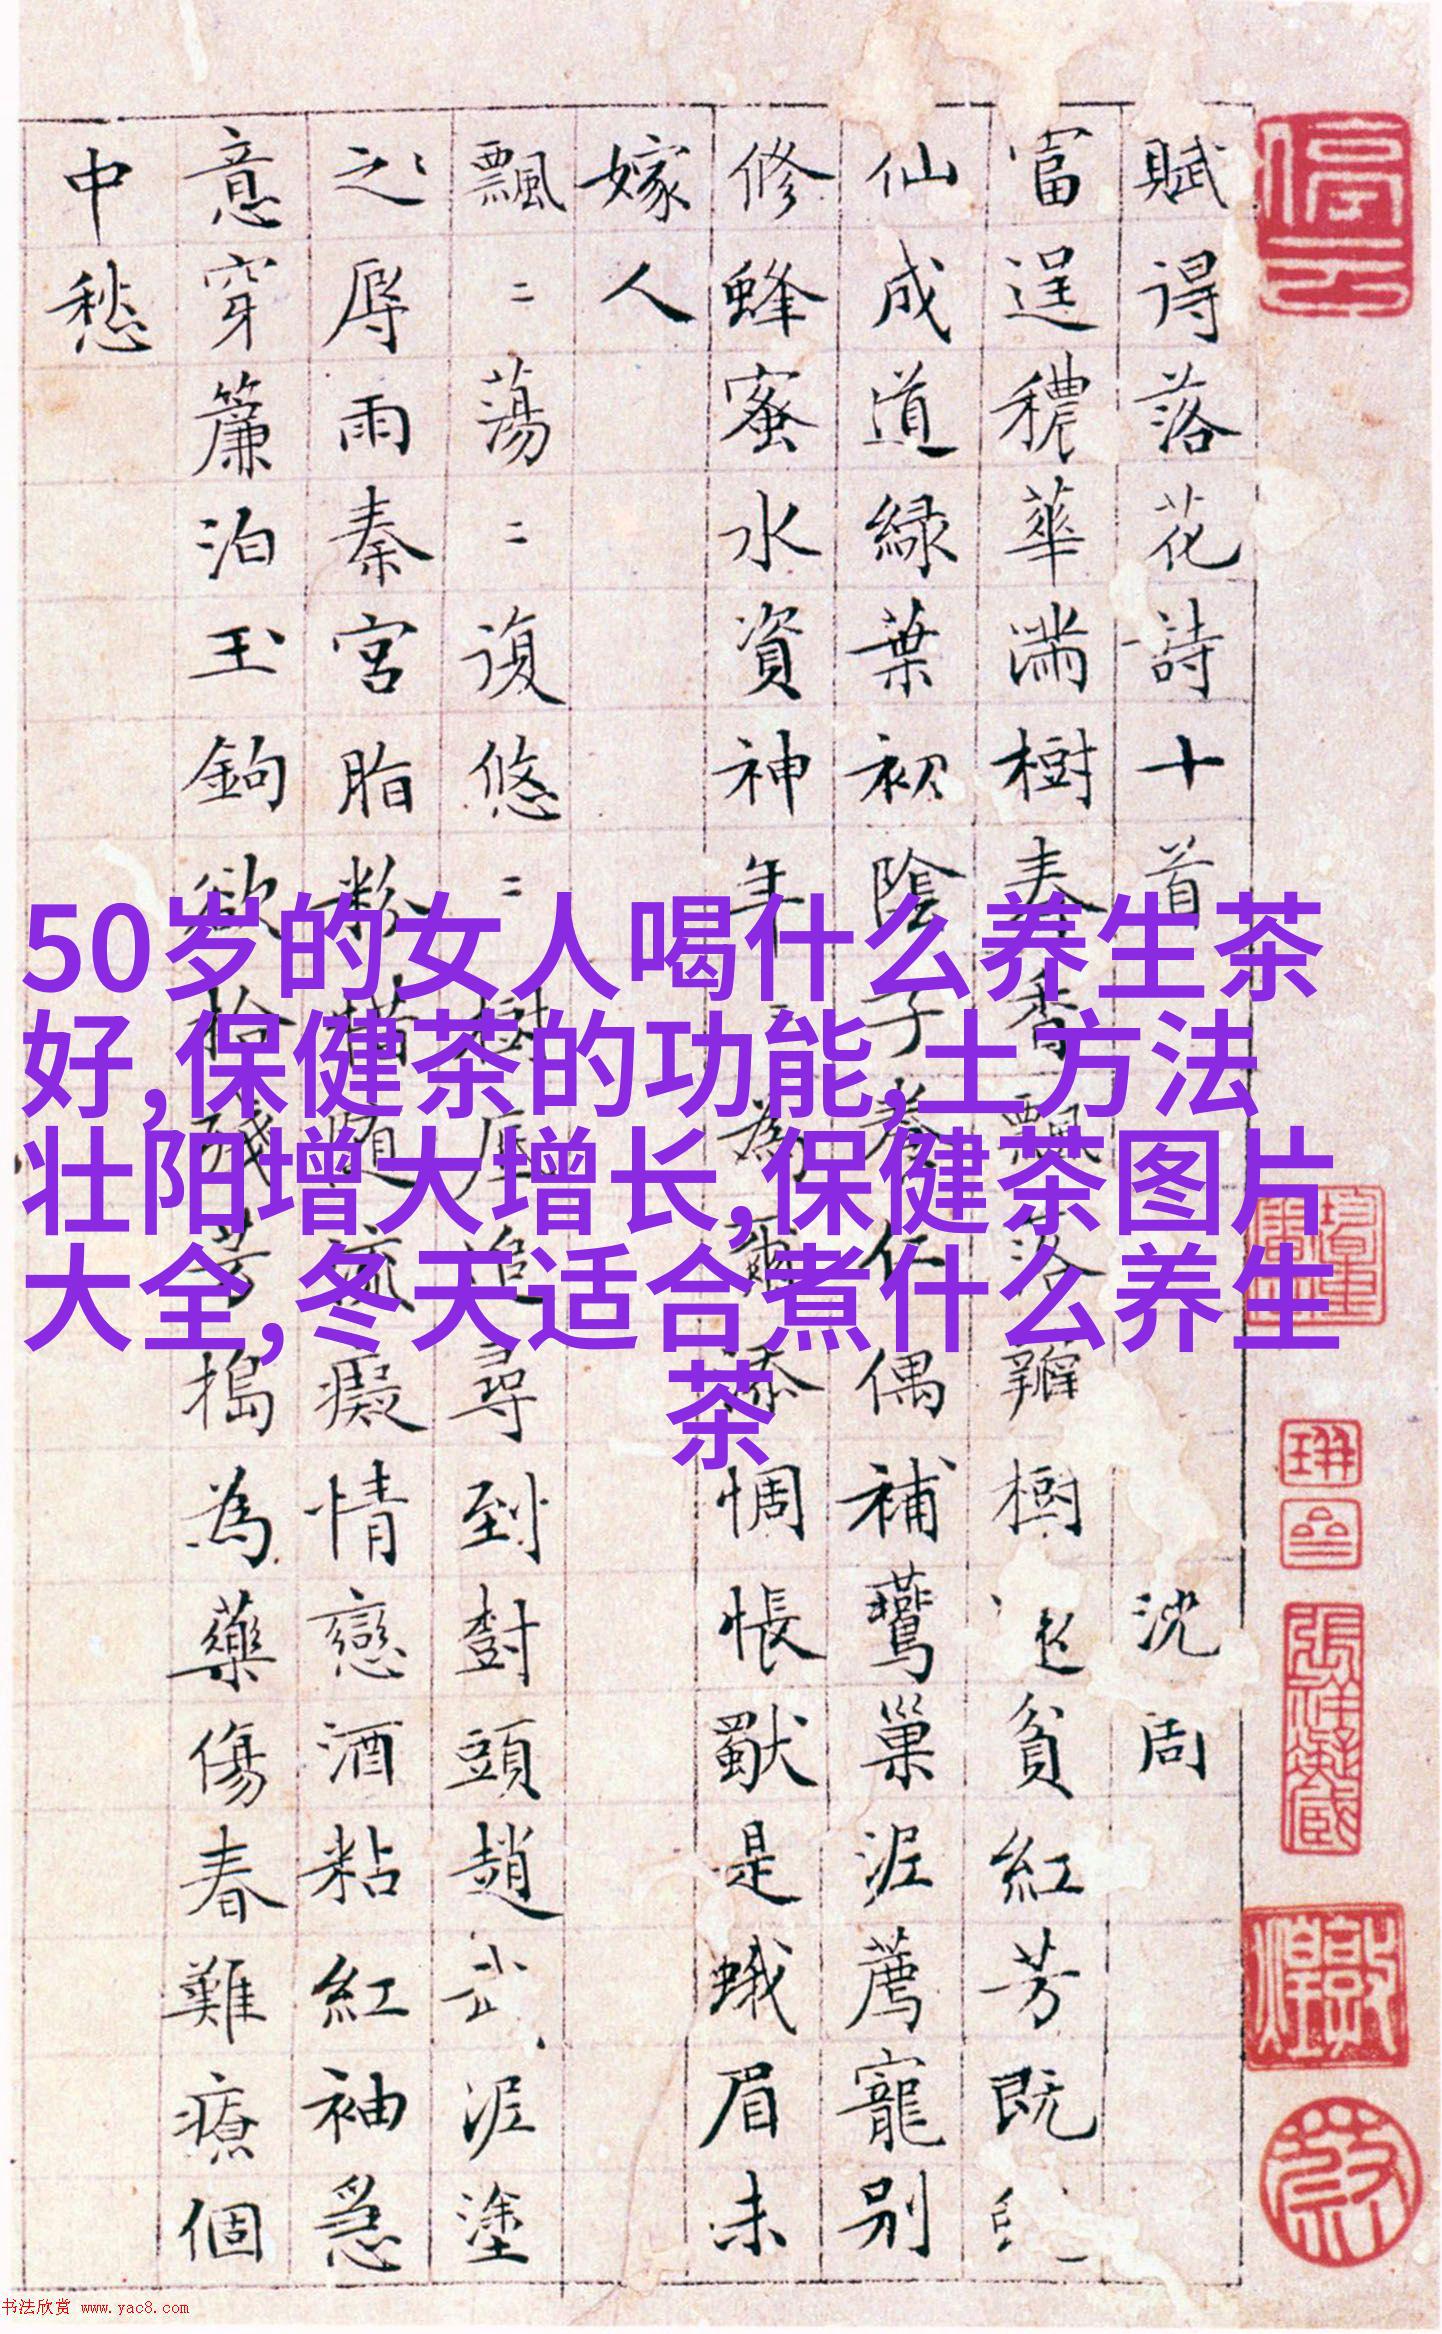 賦得落花詩十首 沈周
富逞穠華滿樹春香飄落瓣樹貧紅芳既
仙成道綠葉初陰子養仁偶補鶯巢泥薦寵別
修蜂蜜水資神年々為爾添惆悵獸是蛾眉未
嫁人
飄々蕩々復悠々樹底追尋到樹頭趙武泥塗
之辱雨秦宮脂粉惜隨流癡情戀酒粘紅袖急
意穿簾泊玉鉤欲拾殘芳搗為藥傷春難療個
中愁
50岁的女人喝什么养生茶
好,保健茶的功能,土方法
壮阳增大增长,保健茶图片
大全,冬天适合煮什么养生
茶
书法欣赏 www.yac8.com